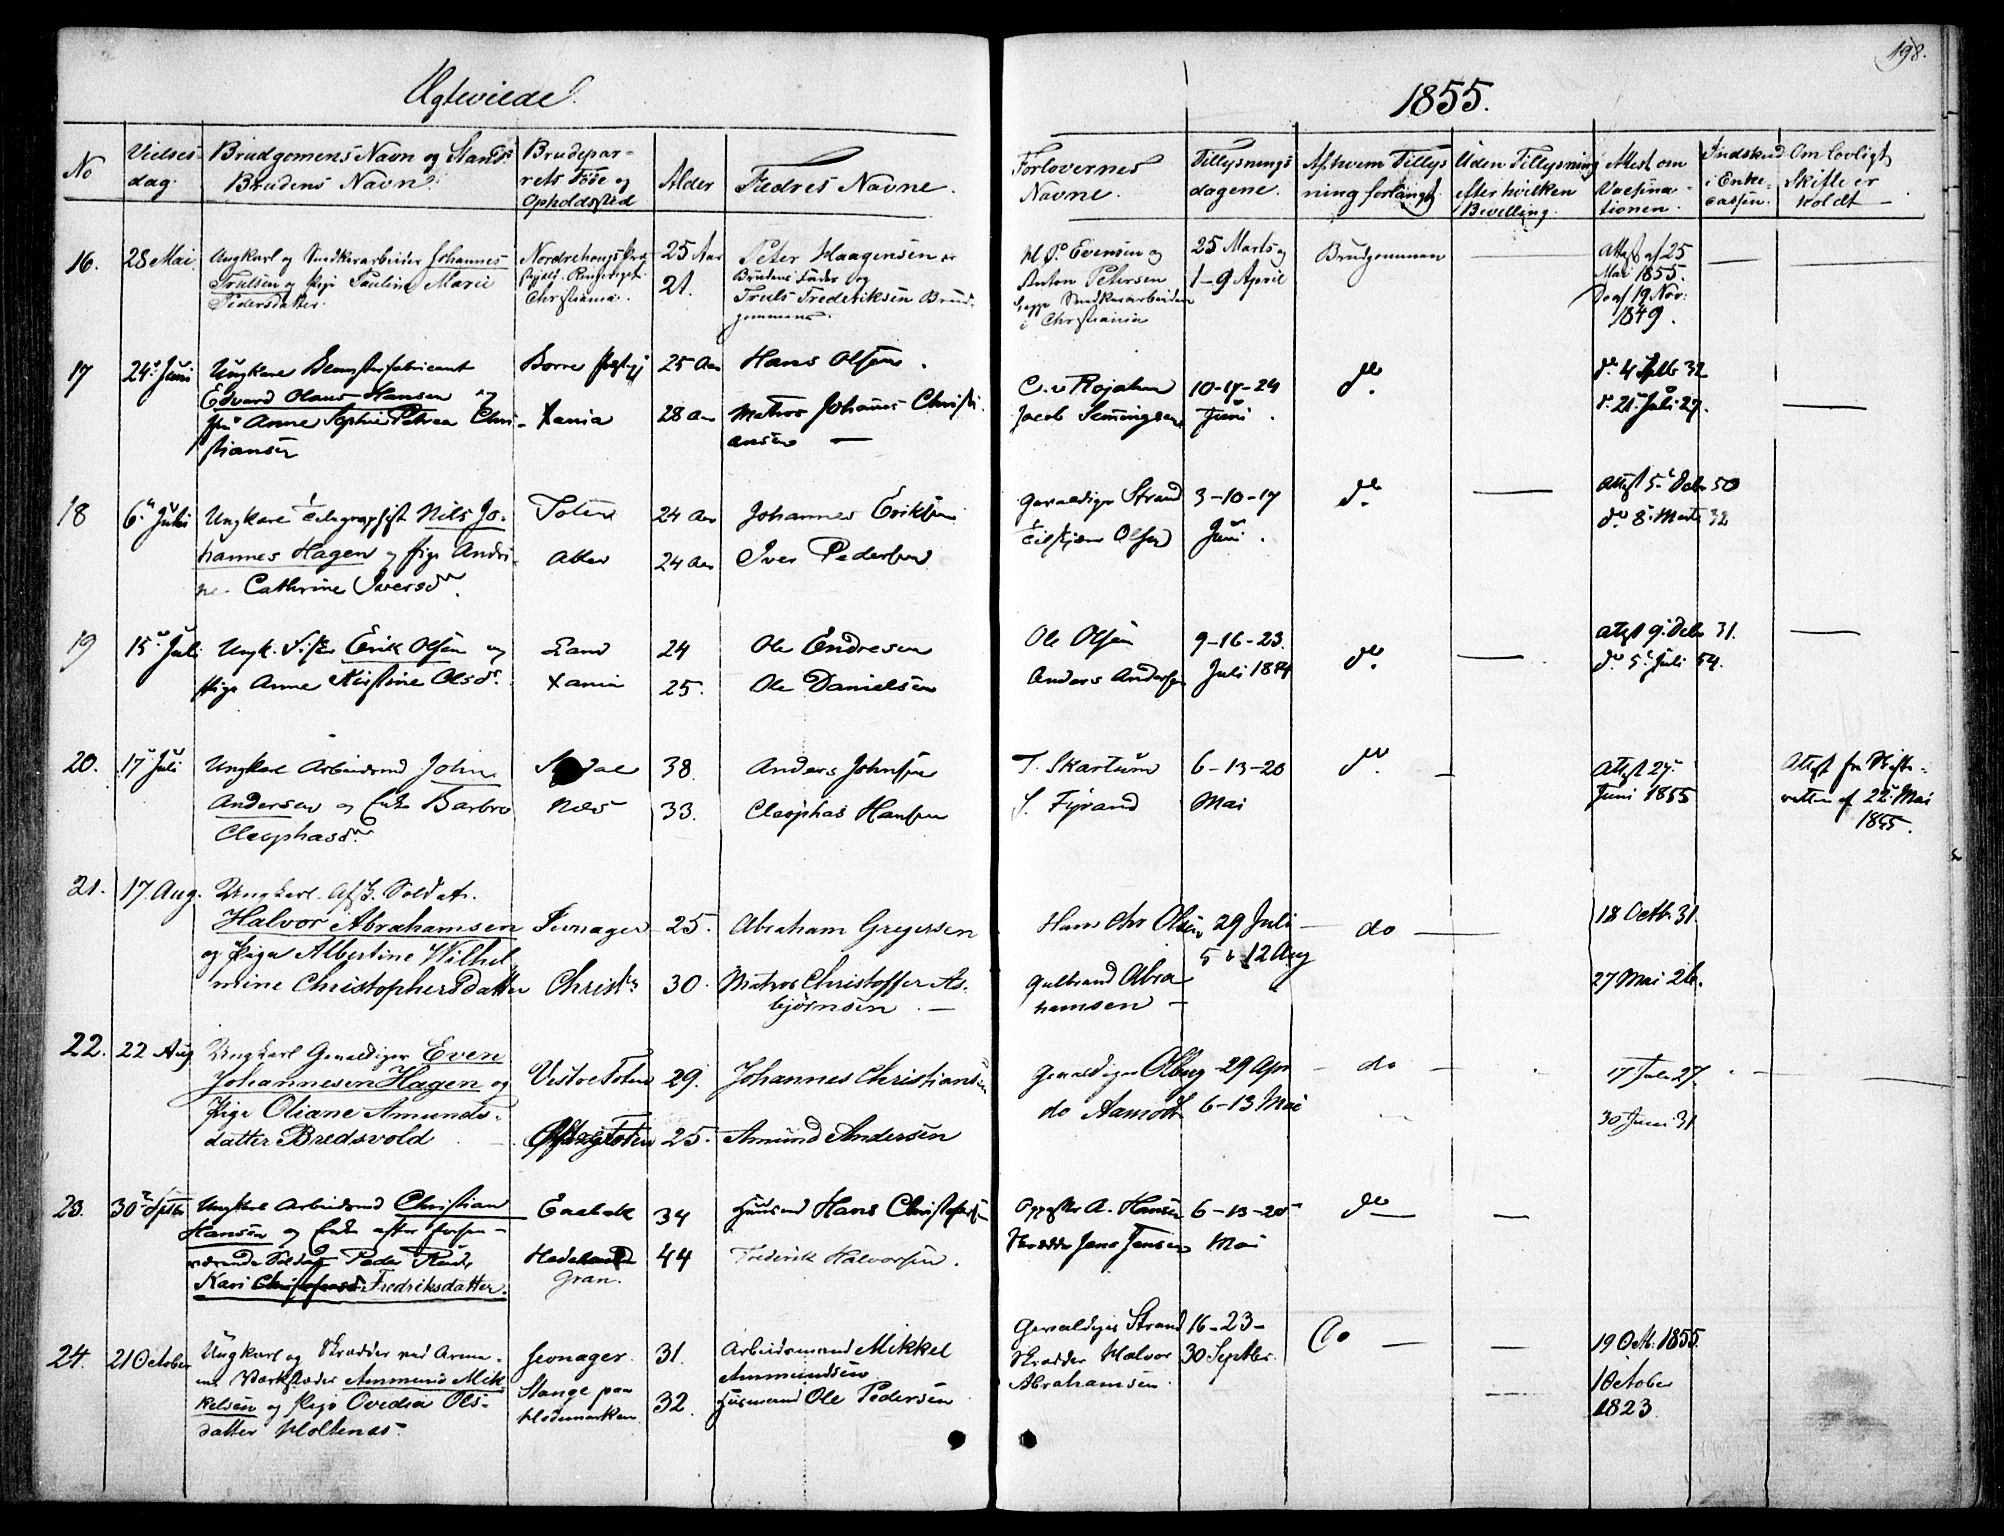 198.
Ægteviede.
1855.
No
Vielses-
dag.
Brudgomens Navn og Stand
Brudens Navn.
Brudepar-
rets Føde og
Opholdssted
Alder
Fædres Navne.
Forlovernes
Navne.
Tillysnings
dagene.
Af hvem Tillys
ning forlangt
Uden Tillysning
efter hvilken
Bevilling.
Attest om
Vaccina-
tionen.
Indskud
i Enke-
cassen.
Om lovligt
Skifte er
holdt
16.
28 Mai
Ungkarl og Snedkerarbeider Johannes
Trulsen og Pige Pauline Marie
Pedersdatter.
Christiania.
25 Aar
21.
Peter Haagensen er
Brudens Fader og
Truls Frederiksen Brud-
gommens.
Evensen og
Anton Petersen
begge Snedkerarbeidere
i Christiania
25 Marts og
1-9 April
Brudgommen
Attest af 25
Mai 1855.
Do af 19 Nov:
1849.
17
24 Juni
Ungkarl
Edvard Olaus Hansen og
Anne Sophie Petrea Chri-
stiansen
Borre
Xania
25 Aar
28 Aar
Hans Olsen.
Matros Johannes Christi-
ansen
C. v Rojahn
Jacob Semmingsen
10-17-24
Juni.
do.
do 4 Septb 32
do 21 Juli 27.
18
6 Juli
Ungkarl Telegraphist Nils Jo-
hannes Hagen og Pige Andri-
ne Cathrine Iversdr.
Toten
Aker
24 Aar
24 Aar
Johannes Eriksen
Iver Pedersen
Gevaldiger Strand
Olsen
3-10-17
Juni.
do.
Attest 5 Decbr 50
do 8 Marts 32
19
15 Juli
Ungk. Erik Olsen og
Pige Anne Kirstine Olsdr.
Land
Xania
24
25.
Ole Endresen
Ole Danielsen
Ole Olsen
Anders Andersen
9-16-23.
Juli 1854
do.
Attest 9 Decbr 31.
do 5 Juli 54.
20.
17 Juli
Ungkarl Arbeidsmd John
Andersen og Enke Barbro
Cleophasdr.
Næs
38.
33.
Anders Johnsen
Cleophas Hansen
T. Skartum
S. Fyrand
6-13-20
Mai
do.
Attest 27
Juni 1855
Attest fra Skifte-
retten af 22 Mai
1855.
21.
17 Aug.
Ungkarl. Afsk. Soldat.
Halvor Abrahamsen
og Pige Albertine Wilhel
mine Christophersdatter
Jevnager
Christa
25.
30.
Abraham Gregersen
Matros Christoffer As-
bjørnsen.
Hans Chr Olsen
Gulbrand Abra
hamsen
29 Juli
5 & 12 Aug
do
18 Octb. 31.
27 Mai 26.
22.
22 Aug
Ungkarl Gevaldiger Even
Johannesen Hagen og
Pige Oliane Amunds-
datter Bredsvold
Vestre Toten
29.
25.
Johannes Christiansen
Amund Andersen
Gevaldiger Olberg
do Aamodt
29 Apr
6-13 Mai
do
17 Juli 27.
30 Juni 31
23.
30 Septbr
Ungkarl Arbeidsmd Christian
Hansen og Enke efter forhen-
værende Soldat Peder
Kari Christophersd. Fredriksdatter.
Gran.
34
44
Huusmd Hans Christophersen
Frederik Halvorsen.
A. Hansen
Skrædder Jens Jensen
6-13-20
Mai
do
24.
21 October
Ungkarl og Skrædder ved Arme-
ens Værksteder Ammund Mik
kelsen og Pige Ovedia Ols-
datter Holtenæs.
Jevnager.
Stange paa
Hedemarken.
31.
32.
Arbeidsmand Mikkel
Ammundsen
Husmand Ole Pedersen
Gevaldiger Strand
Skrædder Halvor
Abrahamsen.
16-23-
30 Septbr.
Do
19 Octb. 1855.
1 October
1823.